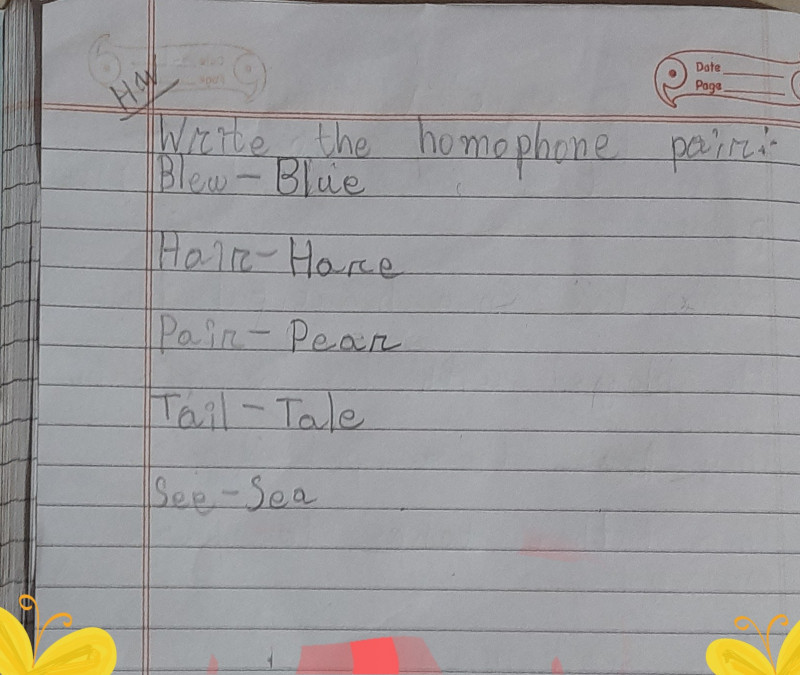 Date
Page
H.W
Write the homophone pair:-
Blew - Blue
Hair - Hare
Pair - Pear
Tail - Tale
See - Sea